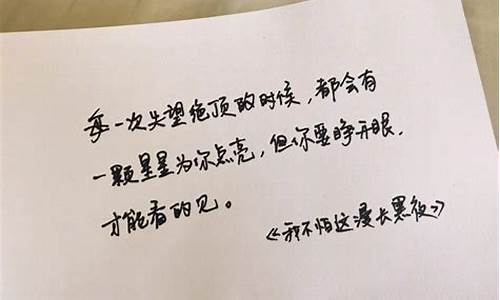 每一次失望绝顶的时候，都会有
一颗星星为你点亮，但你要睁开眼，
才能看的见。
《我不怕这漫长黑夜》